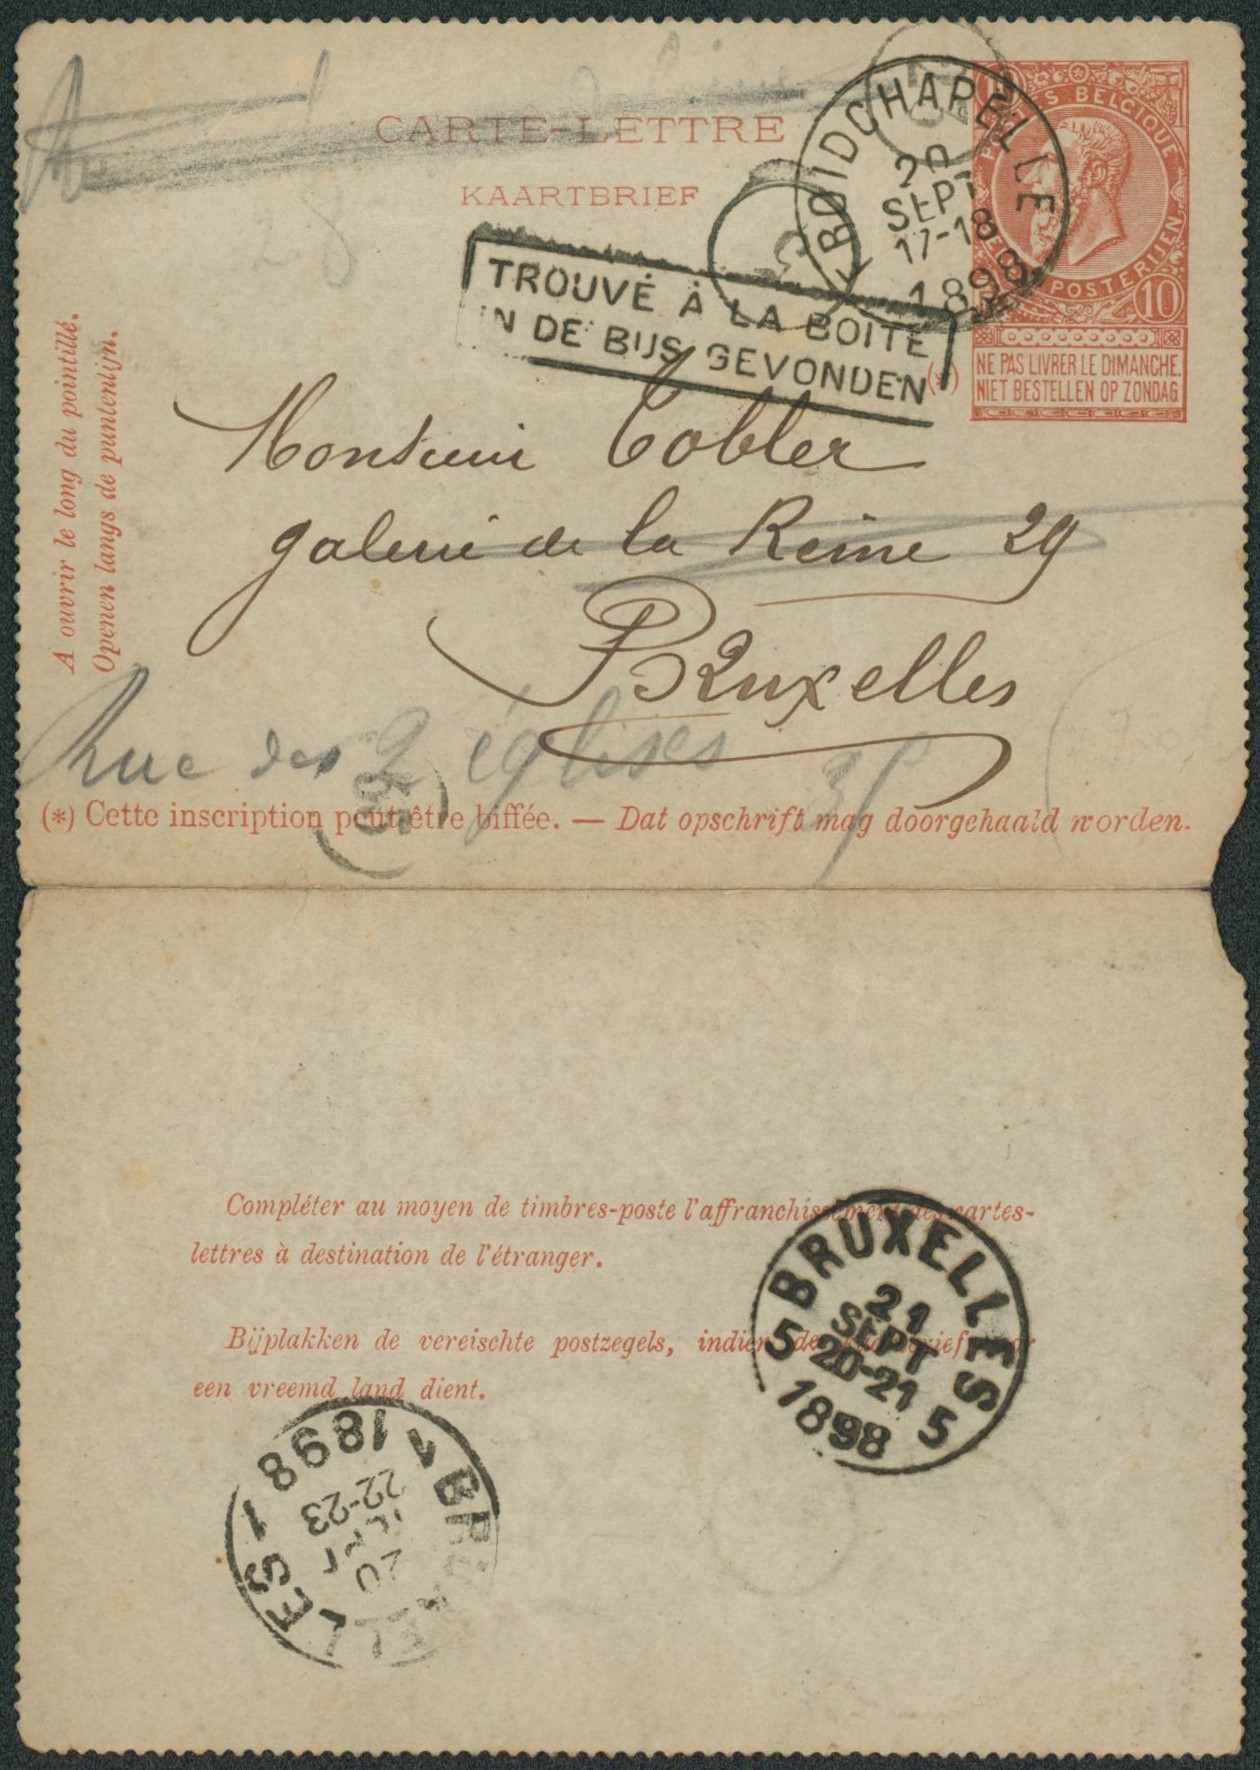 CARTE-LETTRE
KAARTBRIEF
BOIDCHAPELLE
20
SEPT
17-18
1898
POSTES BELGIQUE
BELGIË POSTERIJEN
10
10
NE PAS LIVRER LE DIMANCHE.
NIET BESTELLEN OP ZONDAG
(*)
TROUVÉ À LA BOITE
IN DE BUS GEVONDEN
A ouvrir le long du pointillé.
Openen langs de puntenlijn.
Monsieur Tobler
galerie de la Reine 29
Bruxelles
Rue des 2 églises
(*) Cette inscription peut être biffée. — Dat opschrift mag doorgehaald worden.
Compléter au moyen de timbres-poste l'affranchissement des cartes-
lettres à destination de l'étranger.
Bijplakken de vereischte postzegels, indien de kaartbrief voor
een vreemd land dient.
BRUXELLES
5 5
21
SEPT
20-21
1898
BRUXELLES
1 1
20
SEPT
22-23
1898